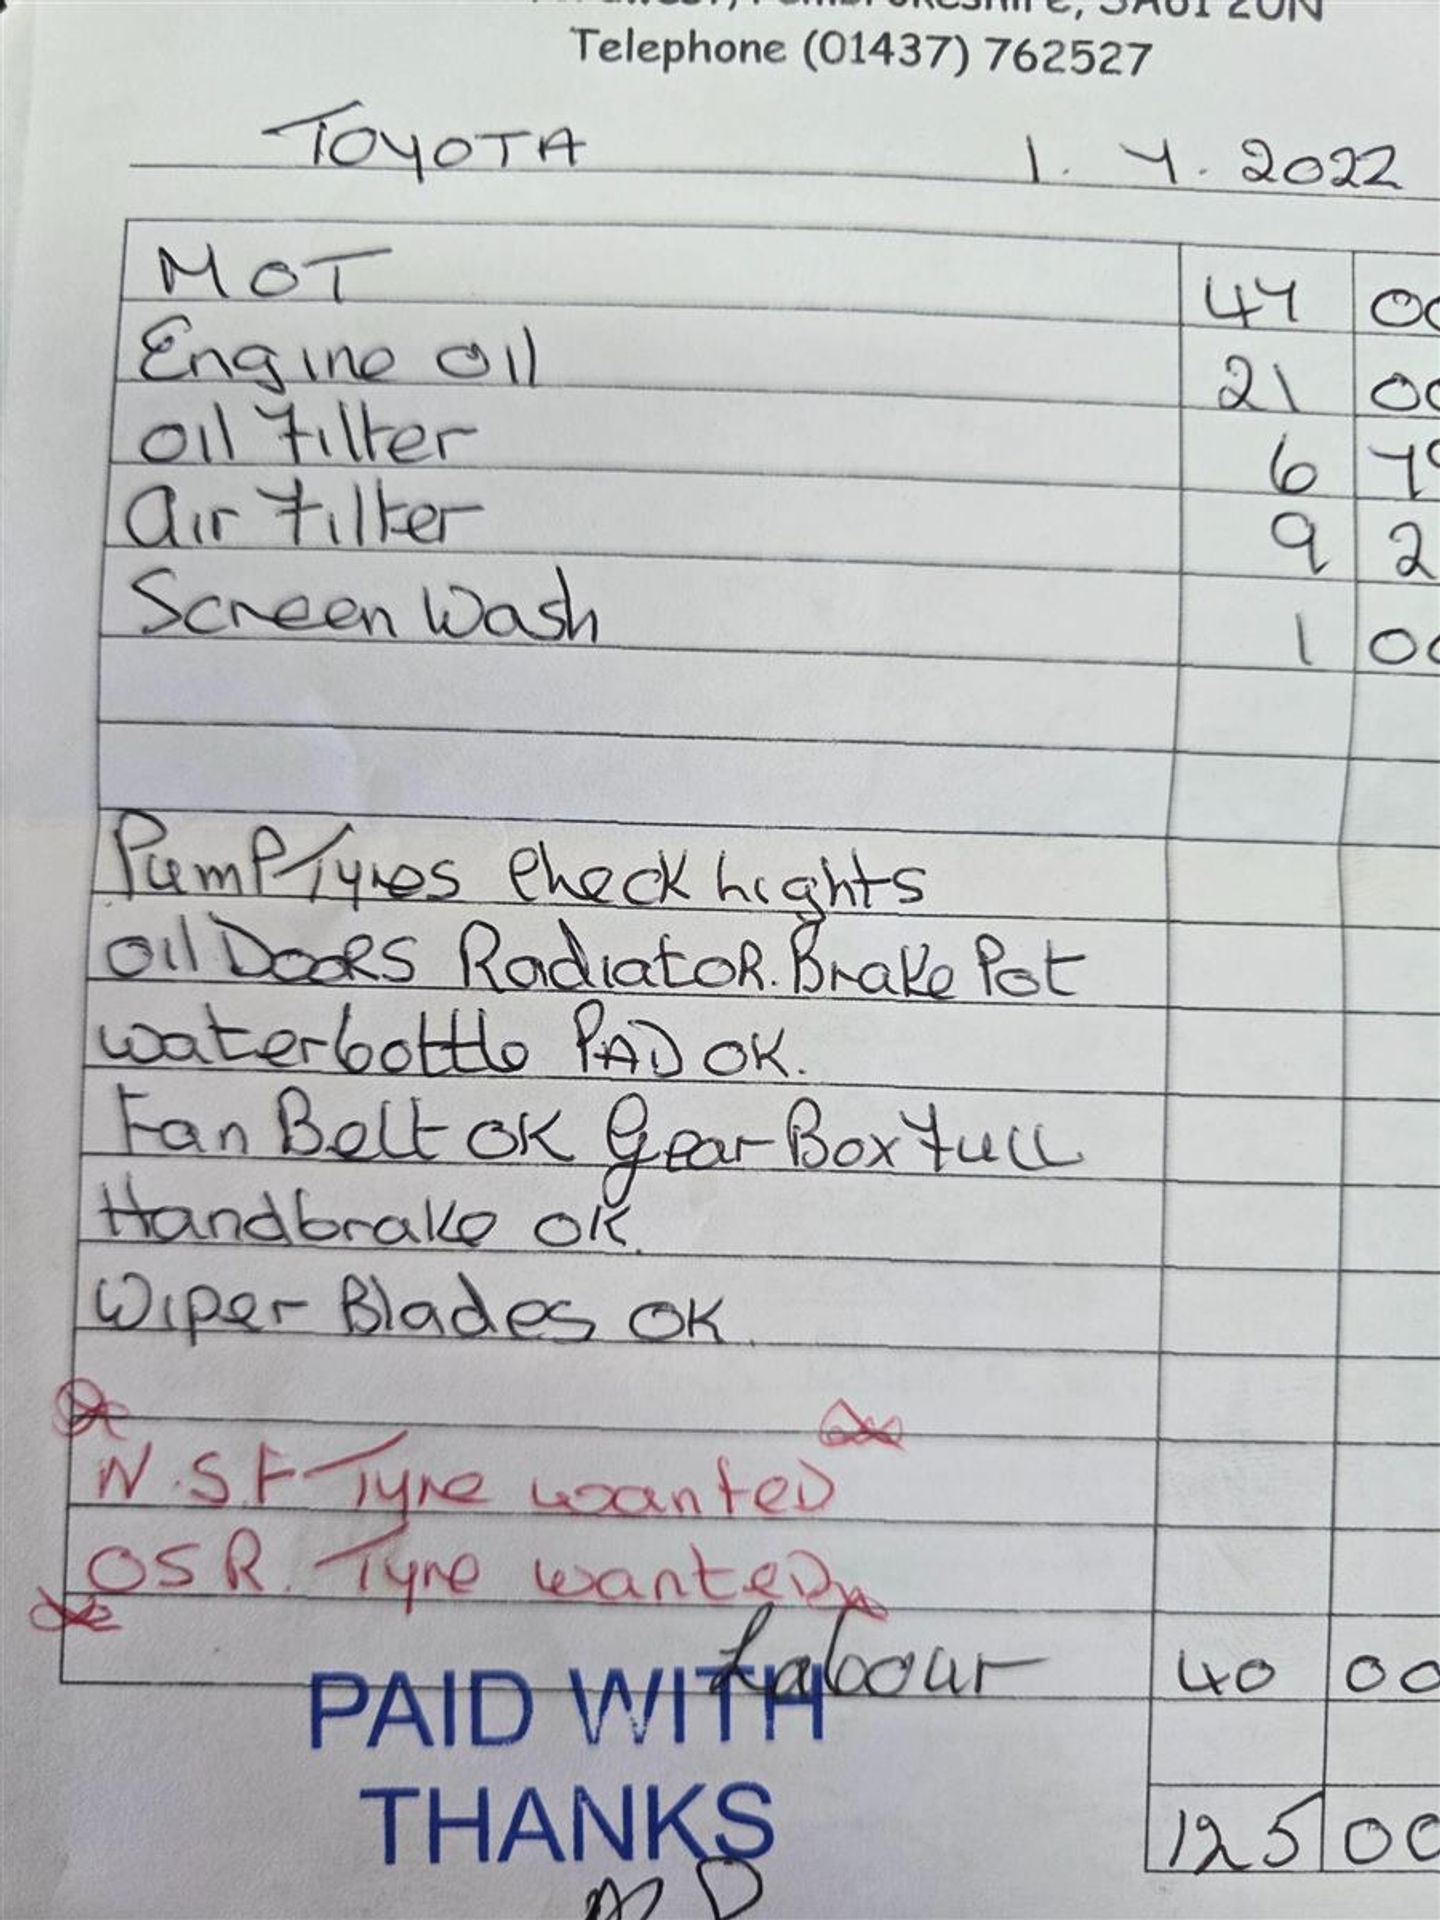 Pembrokeshire, SA61 2UN
Telephone (01437) 762527
TOYOTA 1. 7. 2022
MOT 47 00
Engine oil 21 00
oil filter 6 79
air filter 9 2
Screen Wash 1 00
Pump Tyres Check Lights
oil Doors Radiator. Brake Pot
waterbottle PAD OK.
Fan Belt OK Gear Box full
Handbrake OK.
Wiper Blades OK.
N.S.F Tyre wanted
OSR. Tyre wanted
Labour 40 00
PAID WITH
THANKS
125 00